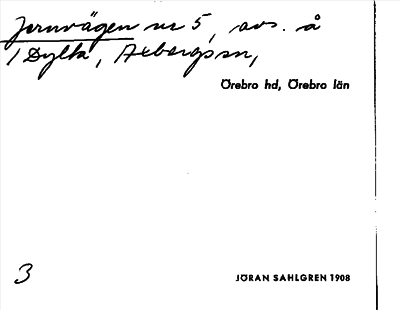 Jernvägen nr 5, avs. å
1 Dylta, Axbergs sn,
Örebro hd, Örebro län
3
JÖRAN SAHLGREN 1908